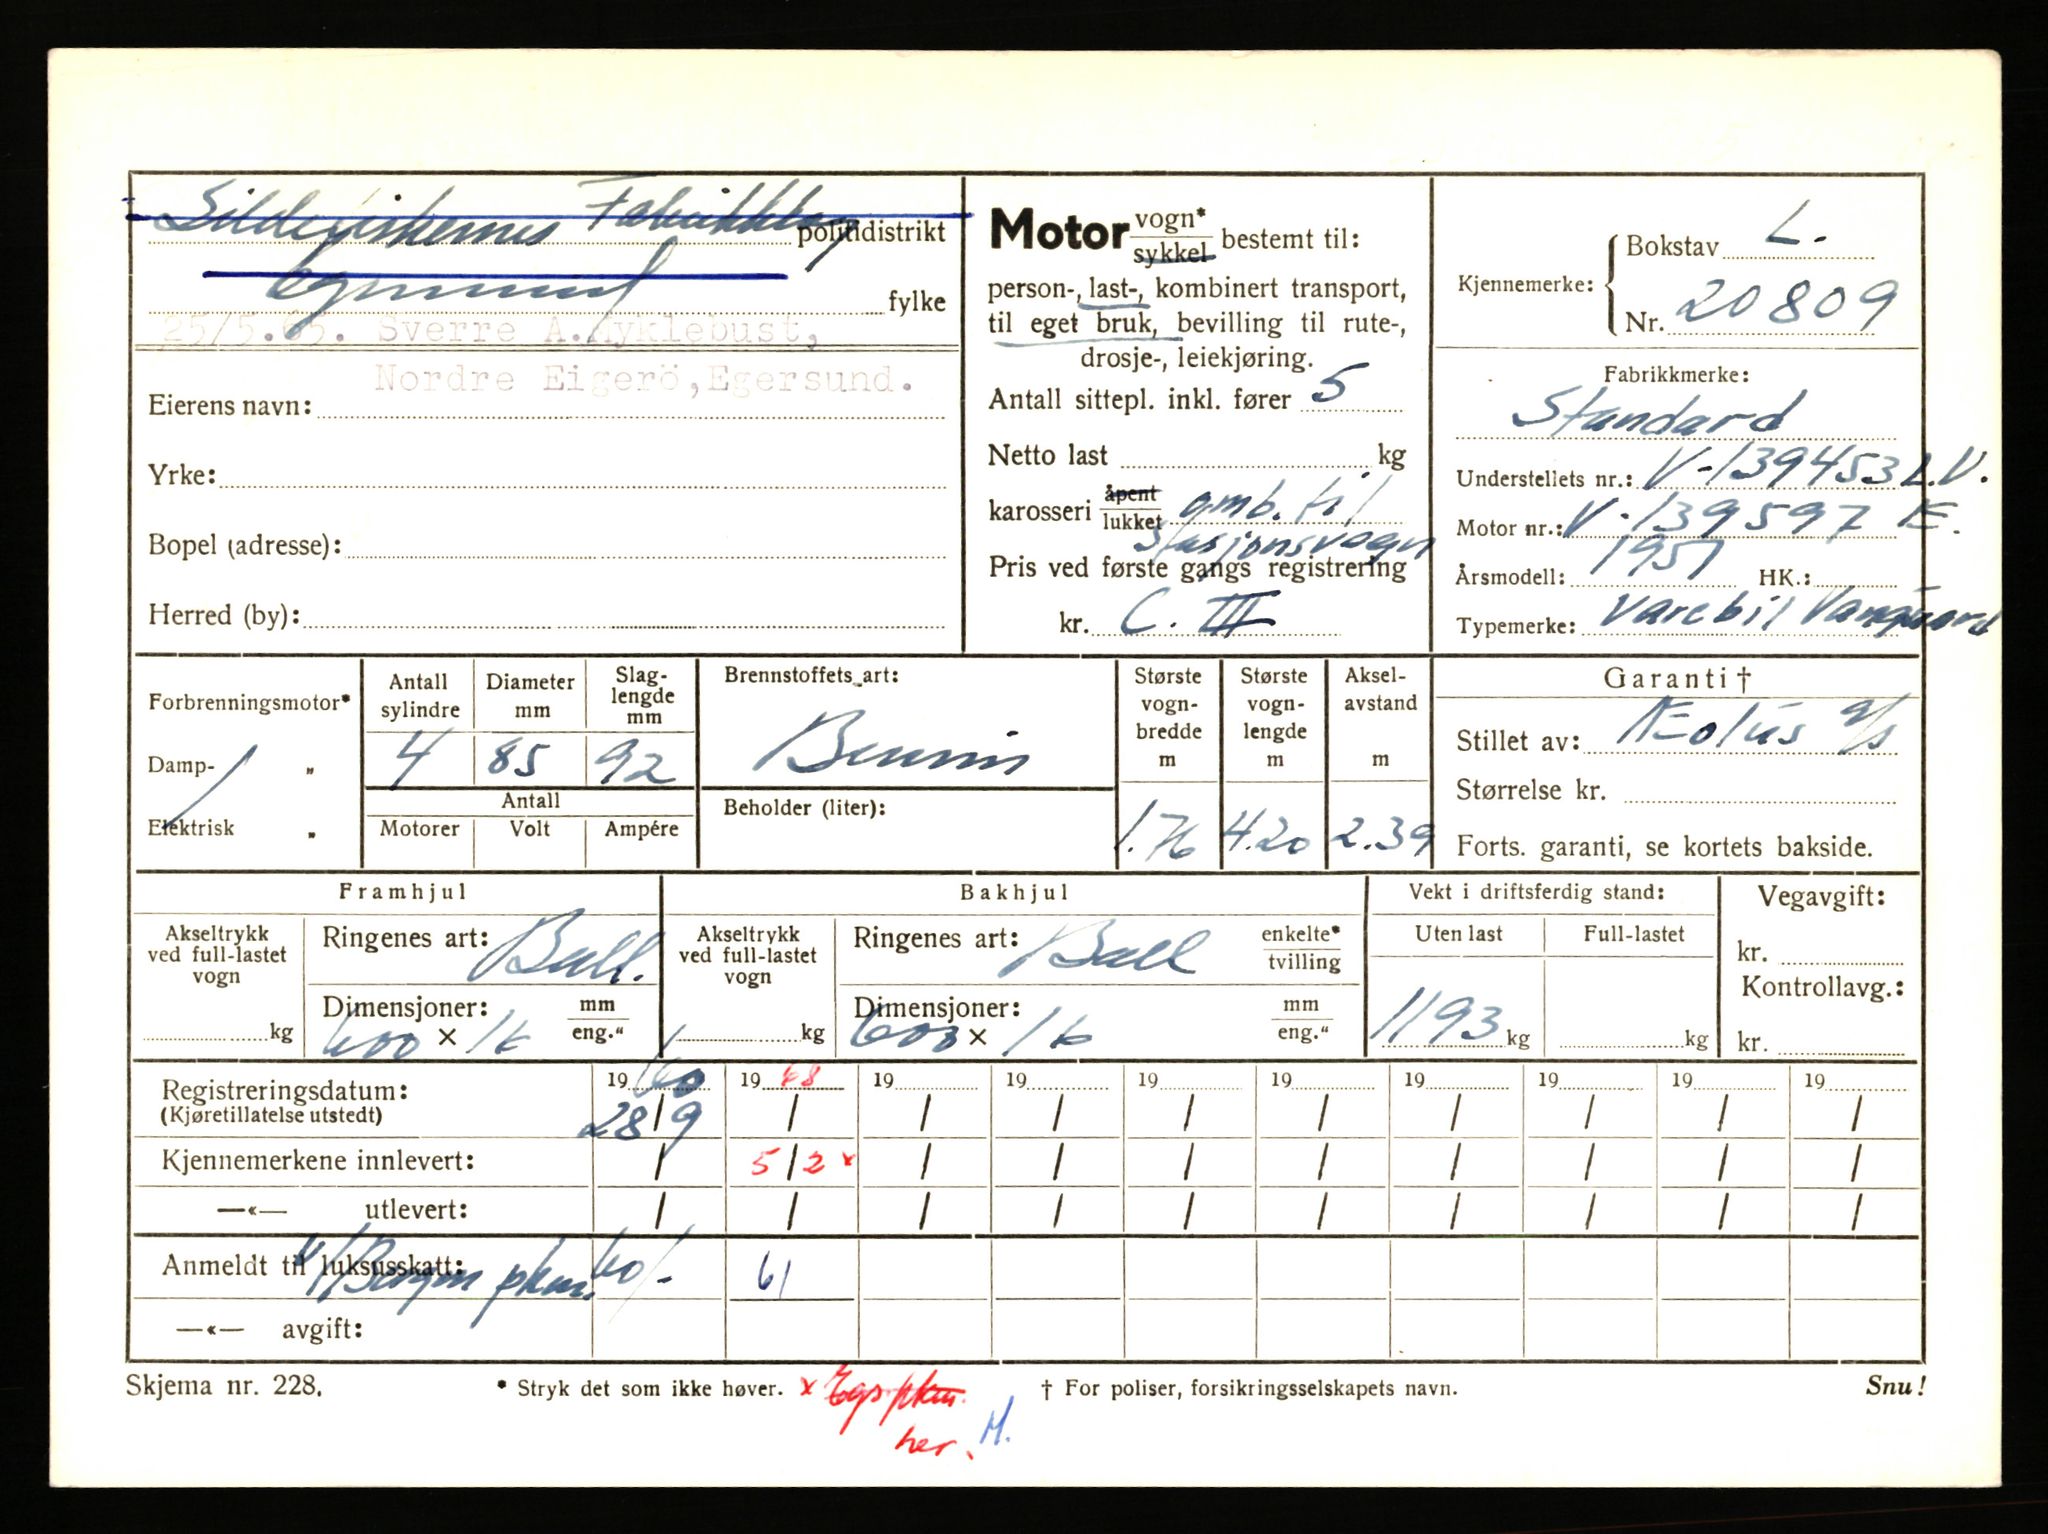 Sildefiskernes Fabrikklag politidistrikt
Egersund fylke
25/5.65. Sverre A.Myklebust,
Nordre Eigerö, Egersund.
Eierens navn:
Yrke:
Bopel (adresse):
Herred (by):
Motor vogn* sykkel bestemt til:
person-, last-, kombinert transport,
til eget bruk, bevilling til rute-,
drosje-, leiekjøring.
Antall sittepl. inkl. fører 5
Netto last kg
karosseri åpent lukket omb. til
Stasjonsvogn
Pris ved første gangs registrering
kr. C. III
Kjennemerke: Bokstav L.
Nr. 20809
Fabrikkmerke:
Standard
Understellets nr.: V-139453 L.V.
Motor nr.: V-139597 E.
Årsmodell: 1951 HK.:
Typemerke: Varebil Vanguard
Forbrenningsmotor*
Damp- „
Elektrisk „
Antall sylindre
Diameter mm
Slag-lengde mm
4 85 92
Antall
Motorer Volt Ampére
Brennstoffets art:
Bensin
Beholder (liter):
Største vogn-bredde m
Største vogn-lengde m
Aksel-avstand m
1.76 4.20 2.39
Garanti †
Stillet av: Æolus a/s
Størrelse kr.
Forts. garanti, se kortets bakside.
Framhjul
Akseltrykk ved full-lastet vogn
kg
Ringenes art: Ball.
Dimensjoner: mm eng."
600 × 16
Bakhjul
Akseltrykk ved full-lastet vogn
kg
Ringenes art: Ball enkelte* tvilling
Dimensjoner: mm eng."
600 × 16
Vekt i driftsferdig stand:
Uten last Full-lastet
1193 kg kg
Vegavgift:
kr.
Kontrollavg.:
kr.
Registreringsdatum: 19 60 19 68 19 19 19 19 19 19 19 19
(Kjøretillatelse utstedt) 28/9 / / / / / / / / /
Kjennemerkene innlevert: / 5/2 x / / / / / / / /
—«— utlevert: / / / / / / / / / /
Anmeldt til luksusskatt: 61
Bergen pkm. 60/-
—«— avgift:
Skjema nr. 228. * Stryk det som ikke høver. x Egs pkm. † For poliser, forsikringsselskapets navn. Snu!
her. H.